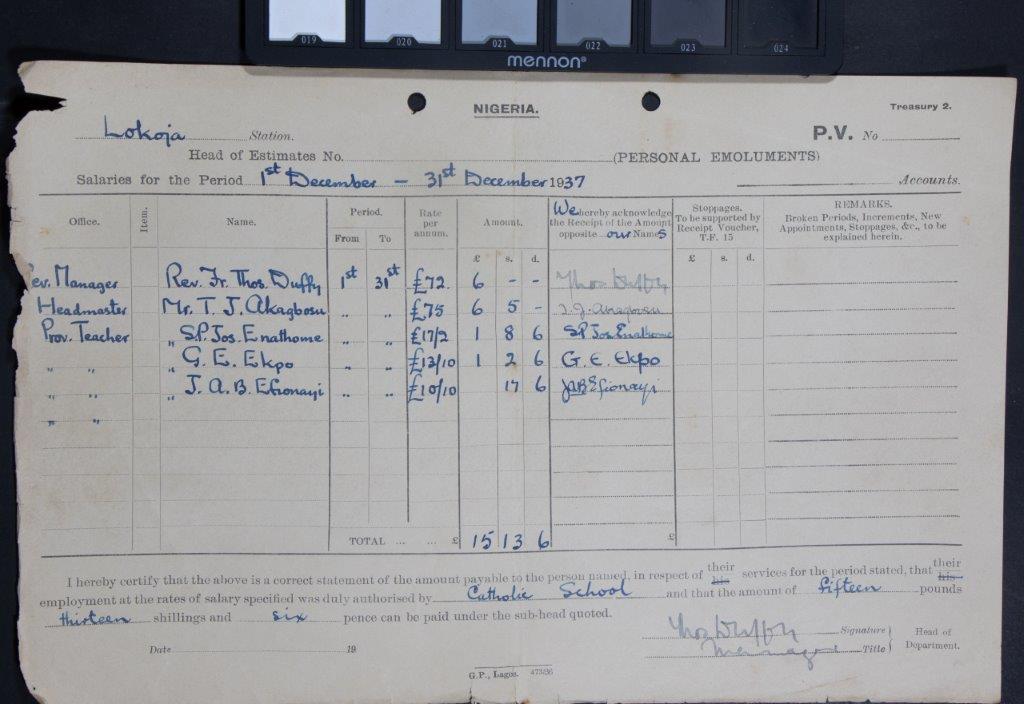 019 020 021 022 023 024
mennon®
NIGERIA.
Treasury 2.
Lokoja Station.
P.V. No
Head of Estimates No. (PERSONAL EMOLUMENTS)
Salaries for the Period 1st December – 31st December 1937 Accounts.
Office. Item. Name. Period. From To Rate per annum. Amount. We hereby acknowledge the Receipt of the Amount opposite our Names Stoppages. To be supported by Receipt Voucher, T.F. 15 REMARKS. Broken Periods, Increments, New Appointments, Stoppages, &c., to be explained herein.
£ s. d. £ s. d.
Rev. Manager Rev. Fr. Thos. Duffy 1st 31st £72. 6 - - Thos Duffy
Headmaster Mr. T. J. Akagbosu „ „ £75 6 5 - T. J. Akagbosu
Prov. Teacher „ S.P. Jos. Enathome „ „ £17/2 1 8 6 S.P. Jos. Enathome
„ „ „ G. E. Ekpo „ „ £13/10 1 2 6 G. E. Ekpo
„ „ „ J. A. B. Efionayi „ „ £10/10 17 6 JAB Efionayi
„ „
TOTAL ... ... £ 15 13 6 £
I hereby certify that the above is a correct statement of the amount payable to the person named, in respect of their his services for the period stated, that their his
employment at the rates of salary specified was duly authorised by Catholic School and that the amount of fifteen pounds
thirteen shillings and six pence can be paid under the sub-head quoted.
Thos Duffy Signature
Manager Title
Head of Department.
Date 19
G.P., Lagos.